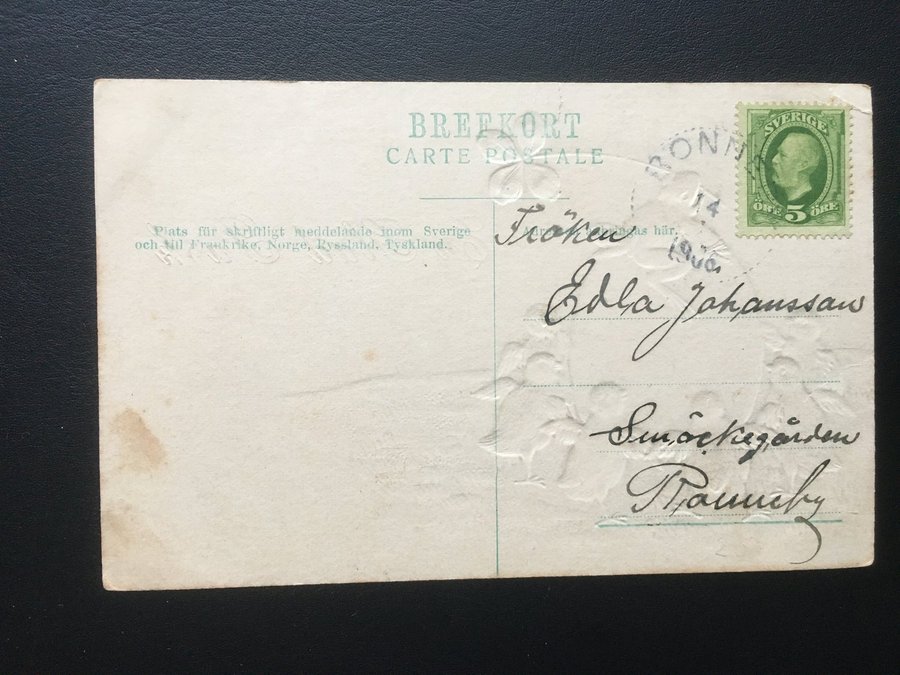 BREFKORT
CARTE POSTALE
Plats för skriftligt meddelande inom Sverige
och till Frankrike, Norge, Ryssland, Tyskland.
SVERIGE
ÖRE 5 ÖRE
RONN
14
1906
Fröken
här.
Edla Johansson
Smöckegården
Ronneby